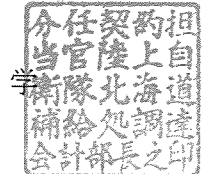 学
分任契約担
当官陸上自
衛隊北海道
補給処調達
会計部長之印